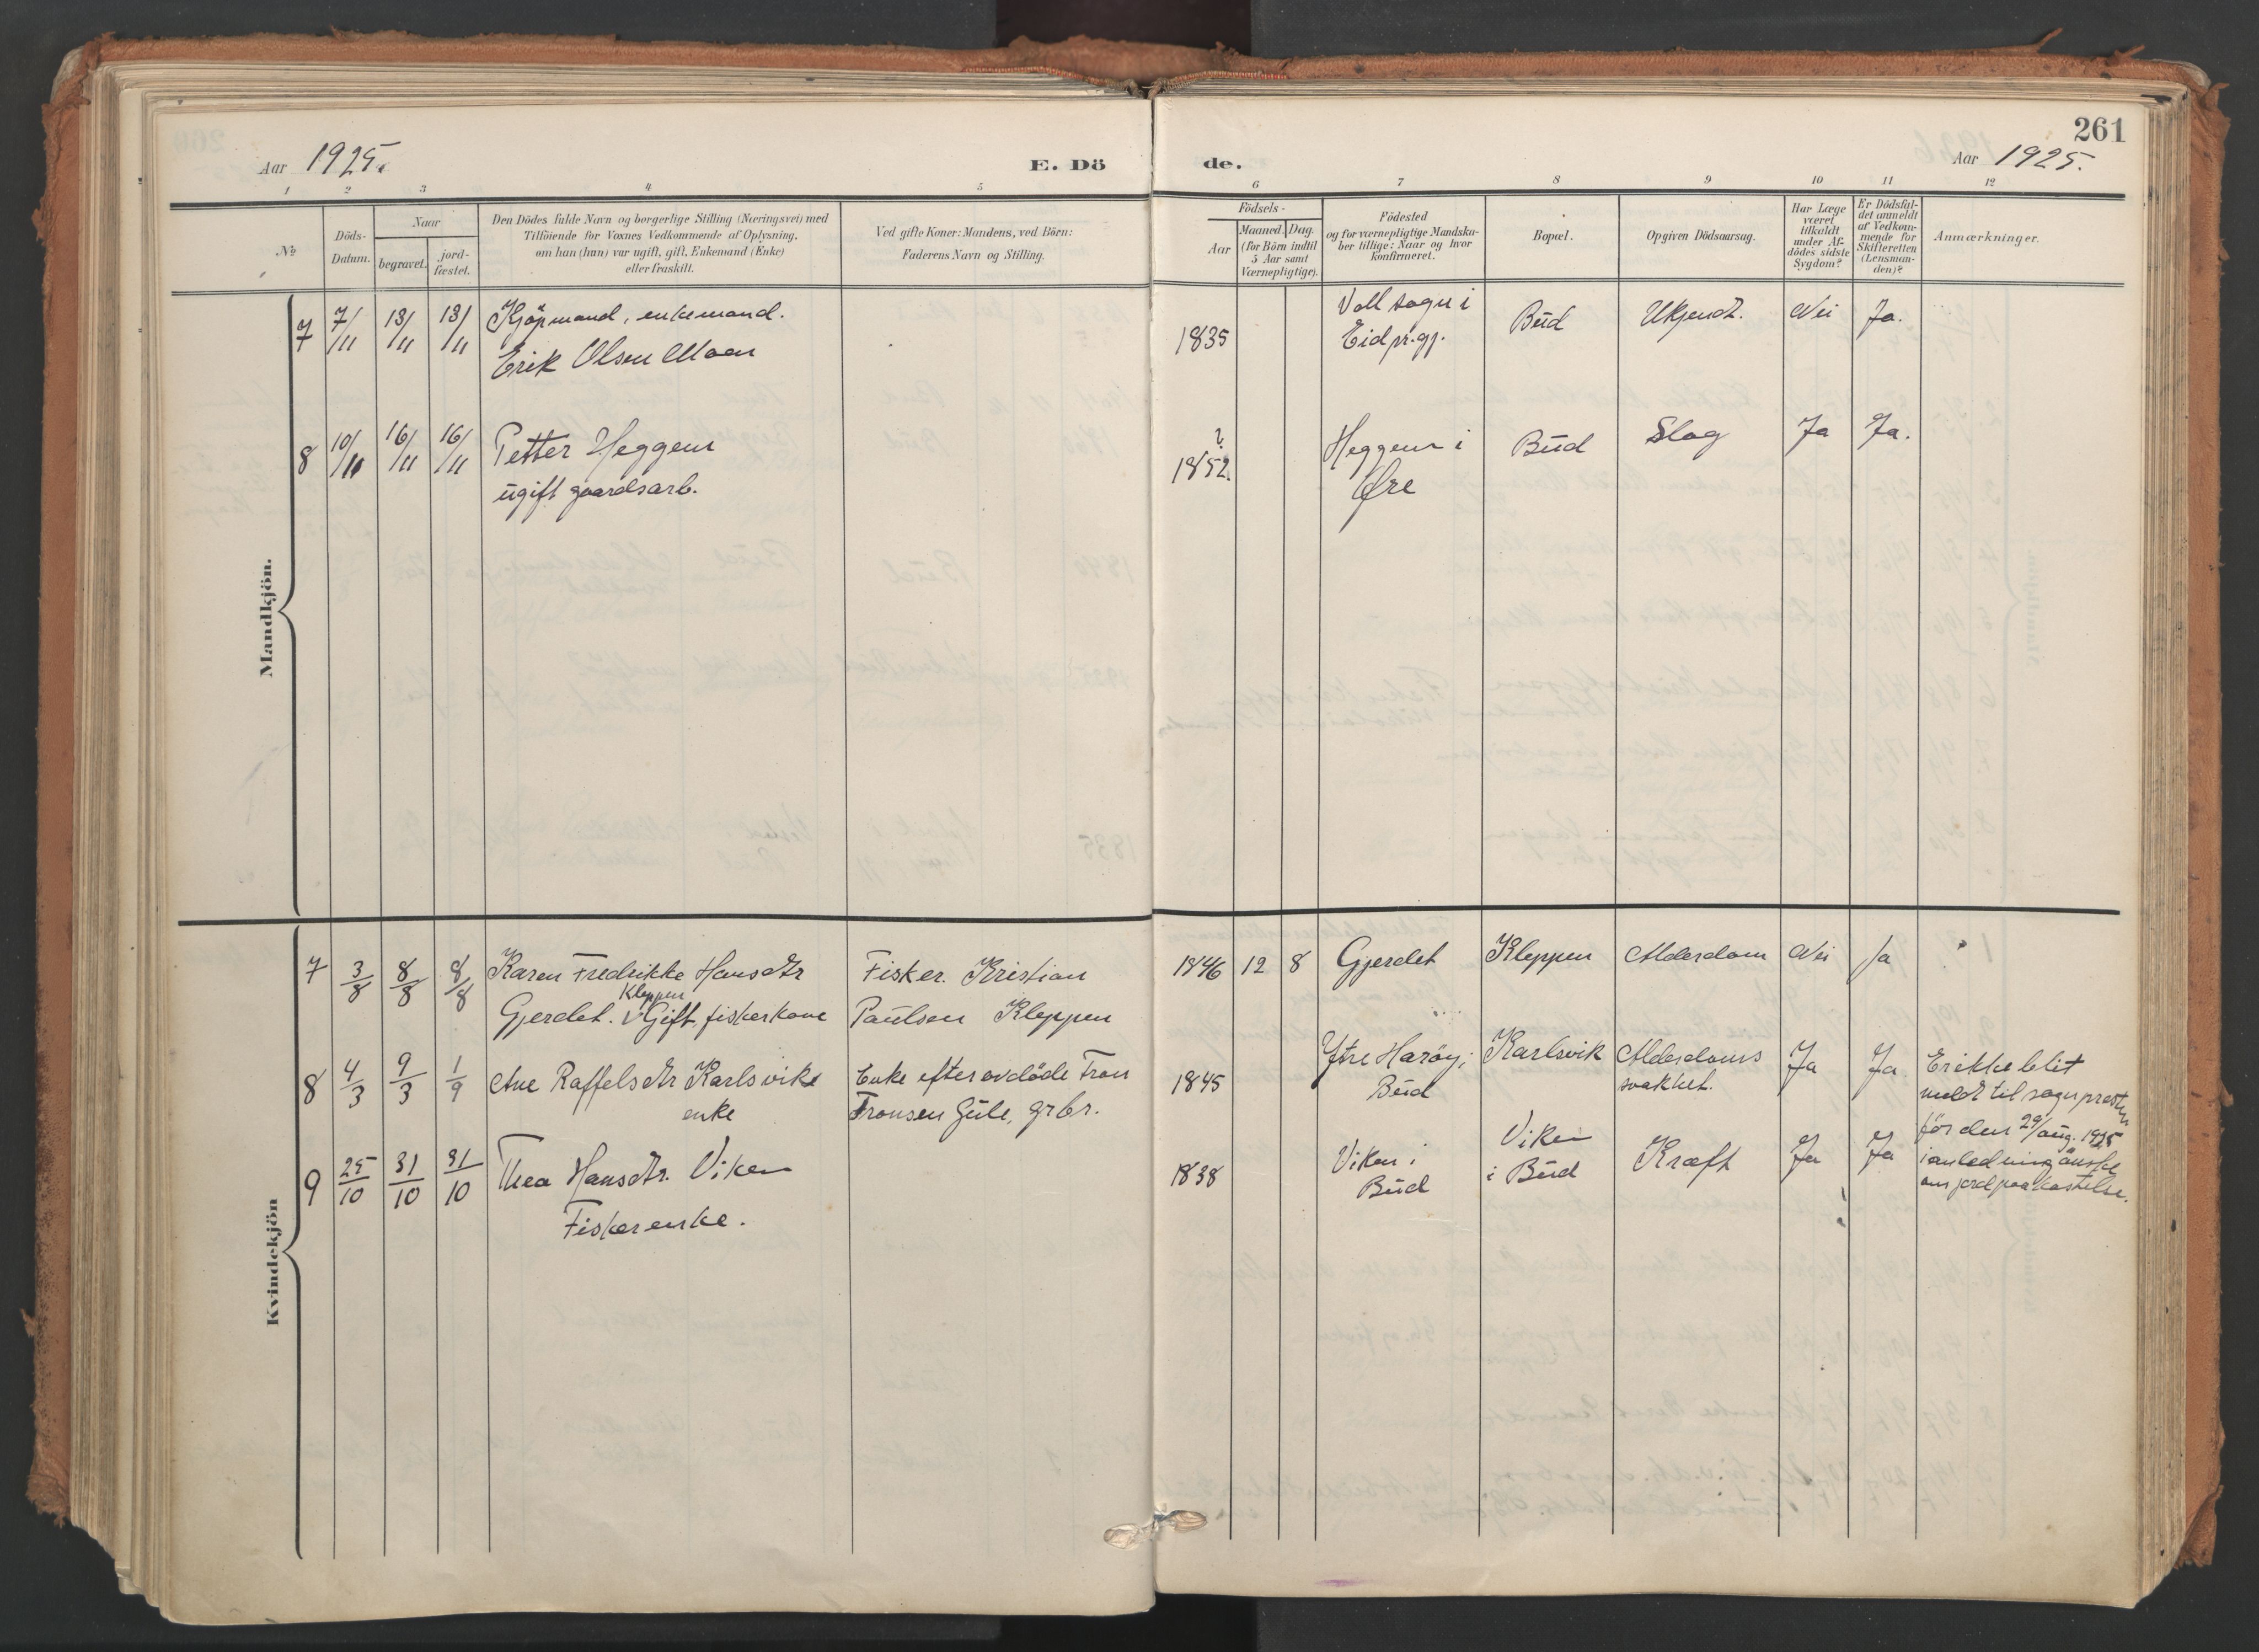 261
Aar 1925.
E. Dö
de.
Aar 1925.
1 2 3 4 5 6 7 8 9 10 11 12
No
Döds-
Datum.
Naar
begravet.
jord-
fæstet.
Den Dödes fulde Navn og borgerlige Stilling (Næringsvei) med
Tilföiende for Voxnes Vedkommende af Oplysning,
om han (hun) var ugift, gift, Enkemand (Enke)
eller fraskilt.
Ved gifte Koner: Mandens, ved Börn:
Faderens Navn og Stilling.
Födsels-
Aar
Maaned. Dag.
(for Börn indtil
5 Aar samt
Værnepligtige).
Födested
og for værnepligtige Mandska-
ber tillige: Naar og hvor
konfirmeret.
Bopæl.
Opgiven Dödsaarsag.
Har Læge
været
tilkaldt
under Af-
dödes sidste
Sygdom?
Er Dödsfal-
det anmeldt
af Vedkom-
mende for
Skifteretten
(Lensman-
den)?
Anmærkninger.
Mandkjön.
7 7/11 13/11 13/11 Kjöpmand, enkemand.
Erik Olsen Moen
1835
Voll sogn i
Eid pr.gj.
Bud Ukjendt. Nei Ja.
8 10/11 16/11 16/11 Petter Heggem
ugift gaardsarb.
?
1852.
Heggem i
Øre
Bud Slag Ja Ja.
Kvindekjön
7 3/8 8/8 8/8 Karen Fredrikke Hansdtr
Kleppen
Gjerdet. V Gift, fiskerkone
Fisker. Kristian
Paulsen Kleppen
1846 12 8 Gjerdet Kleppen Alderdom Nei Ja
8 4/3 9/3 1/9 Ane Raffelsdtr Karlsvike
enke
Enke efter avdöde Tron
Tronsen Gule, grbr.
1845
Ytre Haröy i
Bud
Karlsvik
Alderdoms
svakhet.
Ja Ja
Er ikke blit
meldt til sognpresten
för den 29/aug. 1925
i anledning önske
om jordpaakastelse.
9 25/10 31/10 31/10 Thea Hansdtr. Viken
Fiskerenke.
1838
Viken i
Bud
Viken
i Bud
Kræft Ja Ja